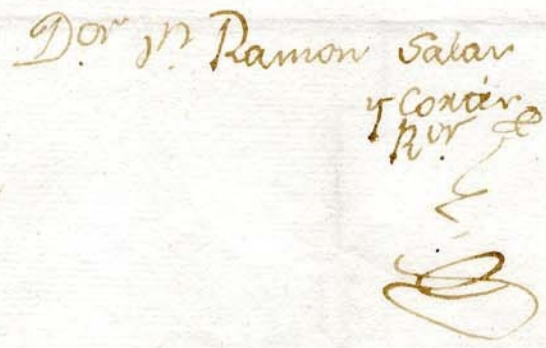 Dor Jn Ramon Salas
y Cortés
Ror